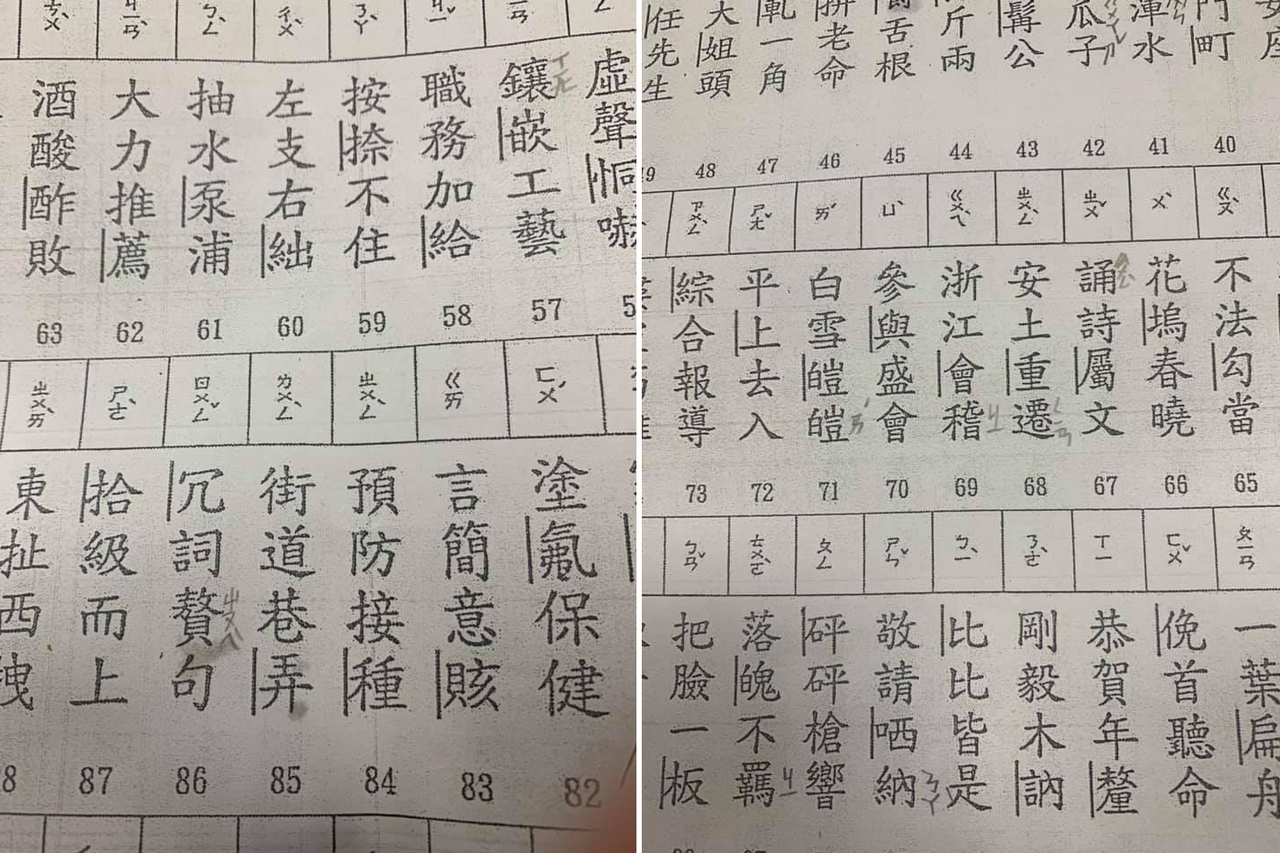 虛聲恫嚇
鑲嵌工藝
職務加給
按捺不住
左支右絀
抽水泵浦
大力推薦
酒酸酢敗
57
58
59
60
61
62
63
ㄈㄨˊ
ㄍㄞ
ㄓㄨㄥˋ
ㄌㄨㄥˋ
ㄖㄨㄥˇ
ㄕㄜˋ
ㄓㄨㄞˋ
塗氟保健
言簡意賅
預防接種
街道巷弄
冗詞贅句
拾級而上
東扯西拽
82
83
84
85
86
87
門町
渾水
瓜子
髯公
斤兩
舌根
拼老命
軋一角
大姐頭
任先生
40
41
42
43
44
45
46
47
48
ㄍㄡˋ
ㄨˋ
ㄓㄨˇ
ㄓㄨㄥˋ
ㄍㄨㄟˋ
ㄩˋ
ㄞˊ
ㄕㄤˇ
ㄗㄨㄥˋ
不法勾當
花塢春曉
誦詩屬文
安土重遷
浙江會稽
參與盛會
白雪皚皚
平上去入
綜合報導
65
66
67
68
69
70
71
72
73
ㄆㄧㄢ
ㄈㄨˇ
ㄒㄧ
ㄋㄜˋ
ㄅㄧˋ
ㄕㄣˇ
ㄆㄥ
ㄊㄨㄛˋ
ㄅㄢˇ
一葉扁舟
俛首聽命
恭賀年釐
剛毅木訥
比比皆是
敬請哂納
砰砰槍響
落魄不羈
把臉一板